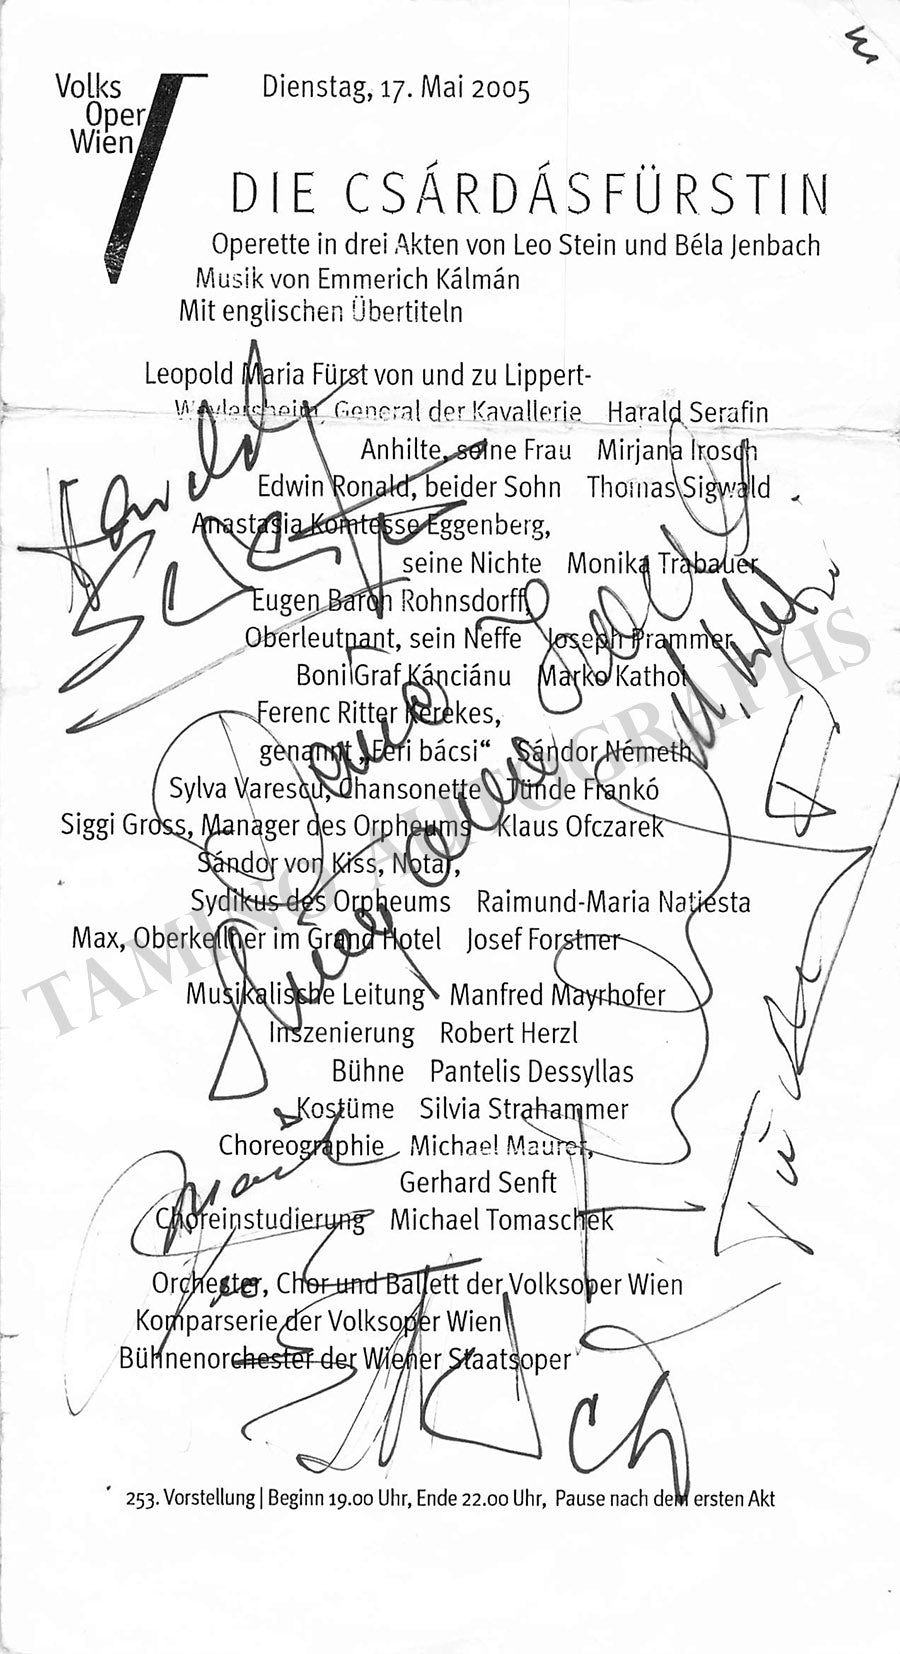 Volks
Oper
Wien
Dienstag, 17. Mai 2005
DIE CSÁRDÁSFÜRSTIN
Operette in drei Akten von Leo Stein und Béla Jenbach
Musik von Emmerich Kálmán
Mit englischen Übertiteln
Leopold Maria Fürst von und zu Lippert-
Weylersheim, General der Kavallerie Harald Serafin
Anhilte, seine Frau Mirjana Irosch
Edwin Ronald, beider Sohn Thomas Sigwald
Anastasia Komtesse Eggenberg,
seine Nichte Monika Trabauer
Eugen Baron Rohnsdorff,
Oberleutnant, sein Neffe Joseph Prammer
Boni Graf Kánciánu Marko Kathol
Ferenc Ritter Kerekes,
genannt „Feri bácsi“ Sándor Németh
Sylva Varescu, Chansonette Tünde Frankó
Siggi Gross, Manager des Orpheums Klaus Ofczarek
Sándor von Kiss, Notar,
Sydikus des Orpheums Raimund-Maria Natiesta
Max, Oberkellner im Grand Hotel Josef Forstner
Musikalische Leitung Manfred Mayrhofer
Inszenierung Robert Herzl
Bühne Pantelis Dessyllas
Kostüme Silvia Strahammer
Choreographie Michael Maurer,
Gerhard Senft
Choreinstudierung Michael Tomaschek
Orchester, Chor und Ballett der Volksoper Wien
Komparserie der Volksoper Wien
Bühnenorchester der Wiener Staatsoper
253. Vorstellung | Beginn 19.00 Uhr, Ende 22.00 Uhr, Pause nach dem ersten Akt
Harald
TAMINO AUTOGRAPHS